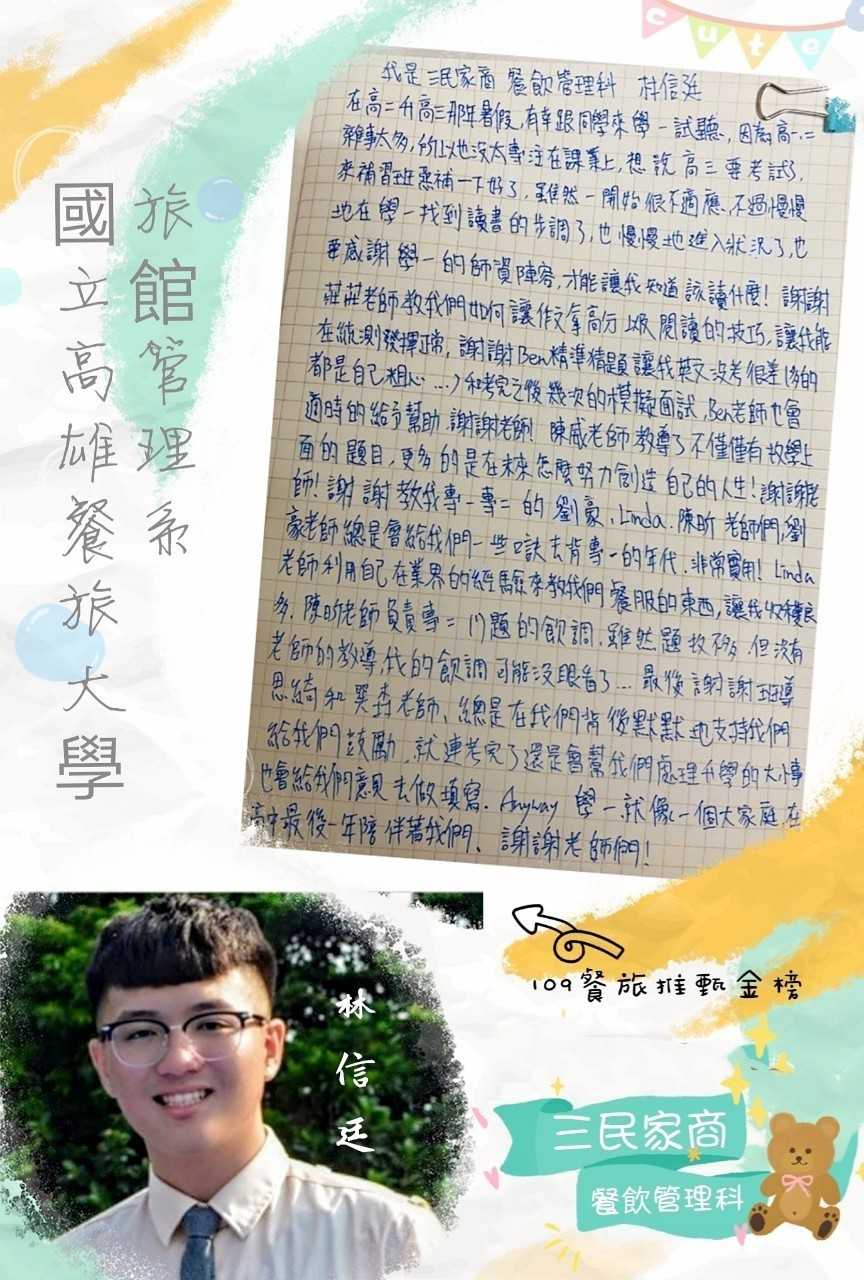 cute
國立高雄餐旅大學
旅館管理系
我是三民家商 餐飲管理科 林信廷
在高二升高三那年暑假,有幸跟同學來學一試聽,因為高一、二
雜事太多,所以也沒太專注在課業上,想說高三要考試了,
來補習班惡補一下好了,雖然一開始很不適應,不過慢慢
地在學一找到讀書的步調了,也慢慢地進入狀況了,也
要感謝學一的師資陣容,才能讓我知道該讀什麼!謝謝
莊莊老師教我們如何讓作文拿高分以及閱讀的技巧,讓我能
在統測發揮正常,謝謝Ben精準猜題讓我英文沒考很差(多的
都是自己粗心...)和考完之後幾次的模擬面試,Ben老師也會
適時的給予幫助,謝謝老師!陳威老師教導了不僅僅有教學上
面的題目,更多的是在未來怎麼努力創造自己的人生!謝謝老
師!謝謝教我專一專二的劉豪、Linda、陳昕老師們,劉
豪老師總是會給我們一些口訣去背專一的年代,非常實用!Linda
老師利用自己在業界的經驗來教我們餐服的東西,讓我收穫良
多,陳昕老師負責專二17題的飲調,雖然題數不多,但沒有
老師的教導,我的飲調可能沒眼看了...最後謝謝班導
思綺和 老師、總是在我們背後默默地支持我們
給我們鼓勵,就連考完了還是會幫我們處理升學的大小事
也會給我們意見去做填寫.Anyway 學一就像一個大家庭在
高中最後一年陪伴著我們、謝謝老師們!
109餐旅推甄金榜
林信廷
三民家商
餐飲管理科